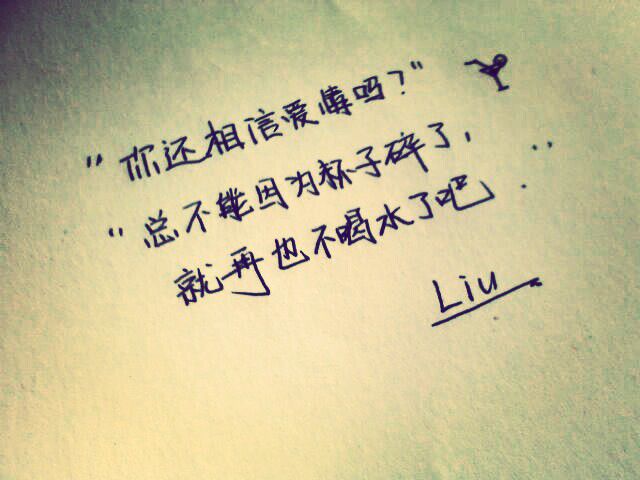 "你还相信爱情吗?"
"总不能因为杯子碎了,
就再也不喝水了吧..."
Liu